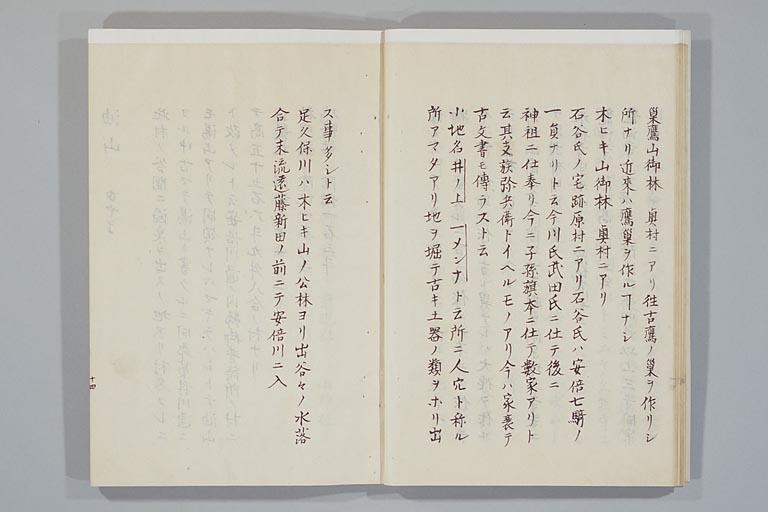 巣鷹山御林　奥村ニアリ往古鷹ノ巣ヲ作リシ
所ナリ近來ハ鷹巣ヲ作ルヿナシ
木ヒキ山御林　奥村ニアリ
石谷氏ノ宅跡原村ニアリ石谷氏ハ安倍七騎ノ
一員ナリト云今川氏武田氏ニ仕テ後ニ
神祖ニ仕奉リ今ニ子孫旗本ニ仕テ数家アリト
云其支族弥兵衛トイヘルモノアリ今ハ家衰テ
古文書モ傳ラスト云
小地名井ノ上　一メンナト云所ニ人穴ト称ル
所アマタアリ地ヲ堀テ古キ土器ノ類ヲホリ出
ス事多シト云
足久保川ハ木ヒキ山ノ公林ヨリ出谷々ノ水落
合テ末流遠藤新田ノ前ニテ安倍川ニ入
十四